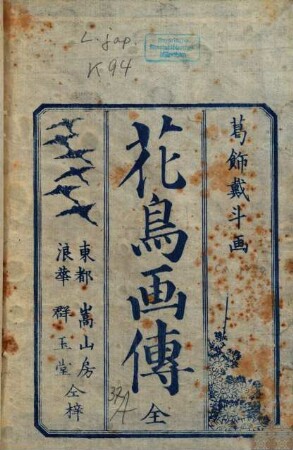 L. jap.
K 94
葛飾戴斗画
花鳥画傳
全
東都 嵩山房
浪華 群玉堂
仝梓